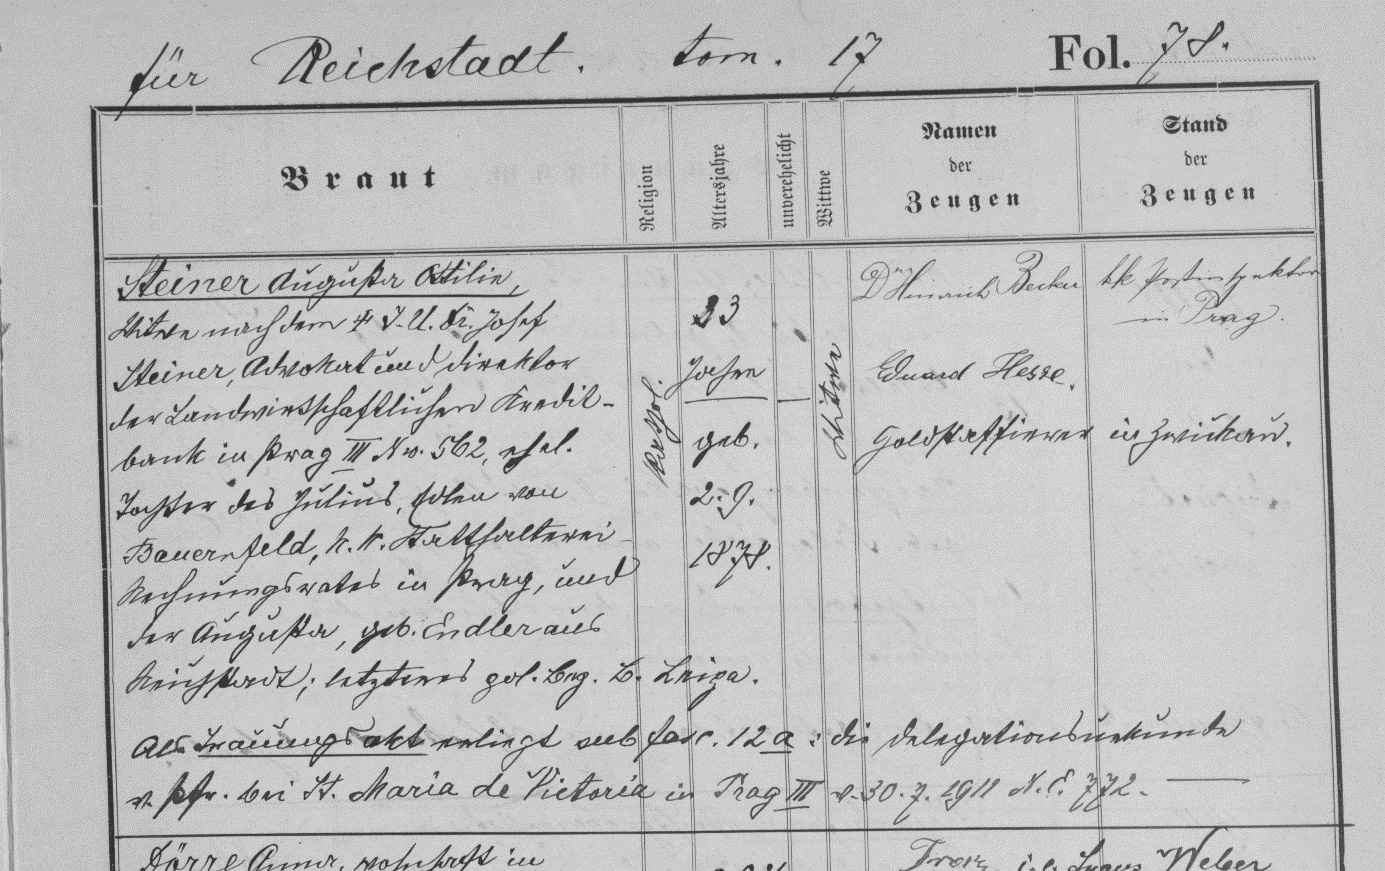 für Reichstadt. tom. 17 Fol. 78.
Braut
Religion
Altersjahre
unverehelicht
Wittwe
Namen
der
Zeugen
Stand
der
Zeugen
Steiner Augusta Ottilie,
Witwe nach dem † J. U. Dr. Josef
Steiner, Advokat und Direktor
der Landwirtschaftlichen Kredit-
bank in Prag III Nro. 562, ehel.
Tochter des Julius, Edlen von
Bauernfeld, k. k. Statthalterei-
Rechnungsrates in Prag, und
der Augusta, geb. Endler aus
Reichstadt; letzteres pol. Bez. B. Leipa.
kathol.
33
Jahre
geb.
2. 9.
1878.
—
Witwe
Dr Heinrich Becker
kk Postinspektor
in Prag.
Eduard Hesse,
Goldstaffierer in Zwickau.
Als Trauungsakt erliegt sub fasc. 12 a: die Delegationsurkunde
v. Pfr. bei St. Maria de Victoria in Prag III v. 30. 7. 1911 N. E. 772. —
Dörre Anna, wohnhaft in
Franz Weber